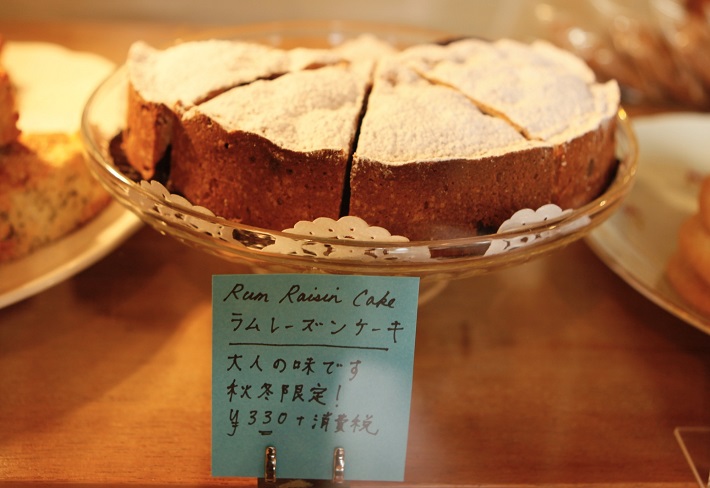 Rum Raisin Cake
ラムレーズンケーキ
大人の味です
秋冬限定!
¥330+消費税